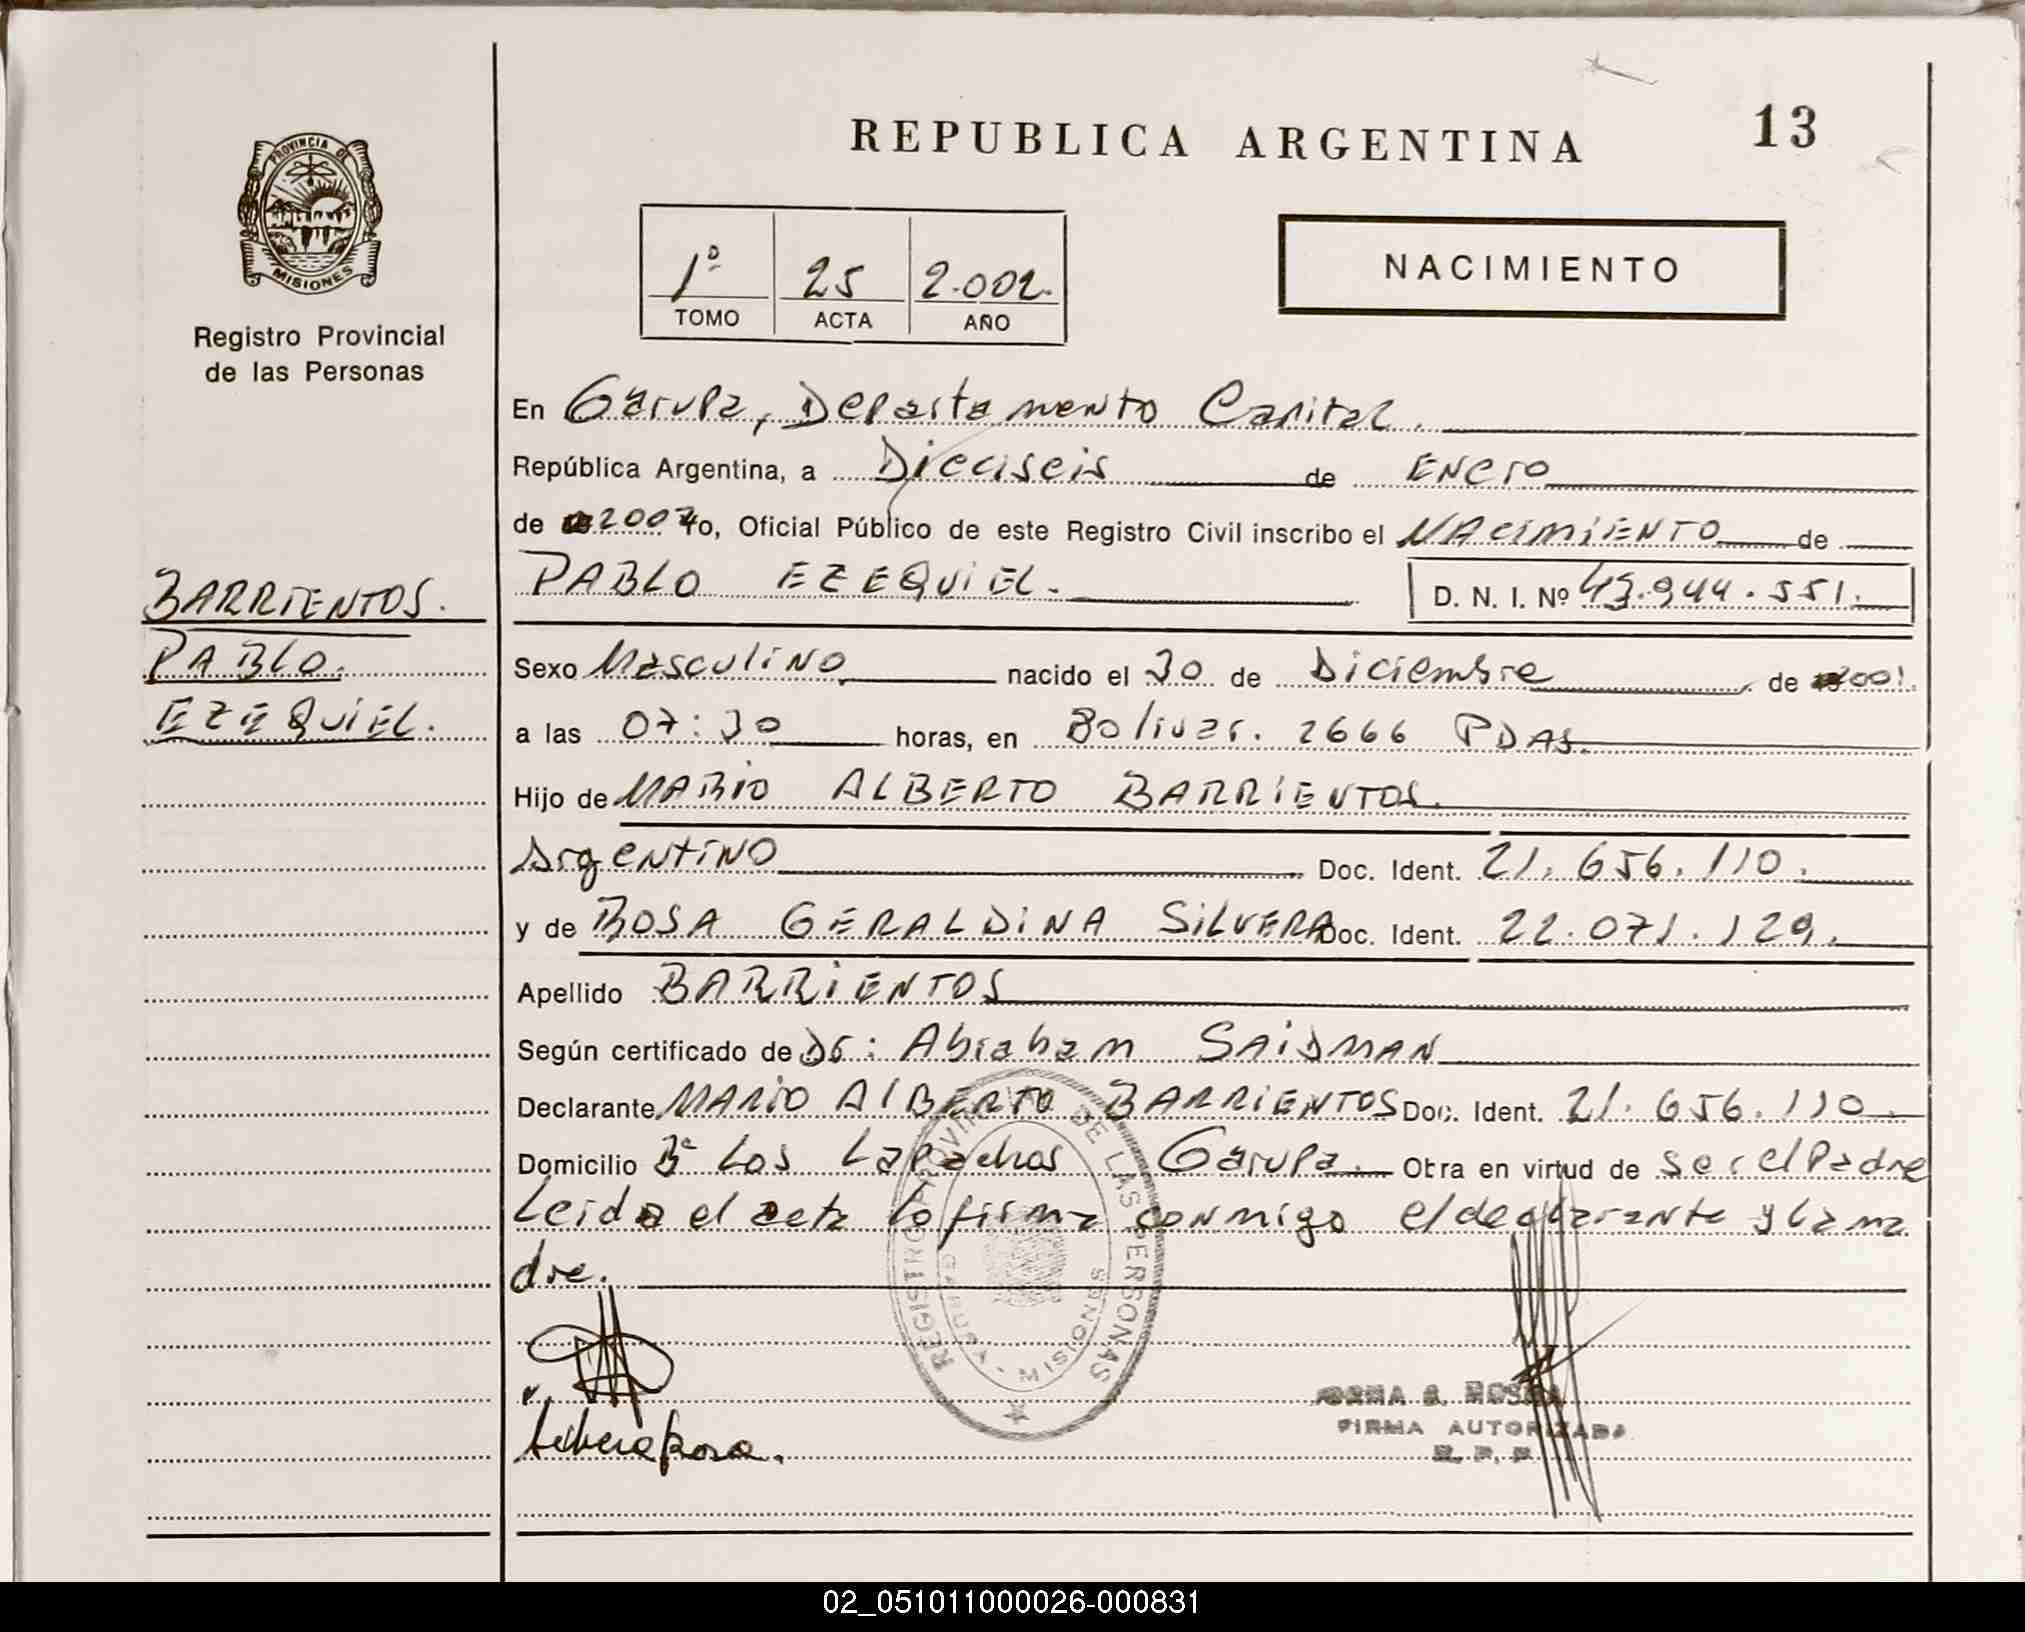 REPUBLICA ARGENTINA
13
PROVINCIA DE
MISIONES
Registro Provincial
de las Personas
1º 25 2.002.
TOMO ACTA AÑO
NACIMIENTO
En Garupa, Departamento Capital.
República Argentina, a Dieciseis de Enero
de 2002 Yo, Oficial Público de este Registro Civil inscribo el NACIMIENTO de
PABLO EZEQUIEL. D. N. I. Nº 43.944.551.
BARRIENTOS.
PABLO.
EZEQUIEL.
Sexo Masculino nacido el 30 de Diciembre de 2001.
a las 07:30 horas, en Bolivar. 2666 PDAS.
Hijo de MARIO ALBERTO BARRIENTOS.
Argentino Doc. Ident. 21.656.110.
y de ROSA GERALDINA SILVERA Doc. Ident. 22.071.129.
Apellido BARRIENTOS
Según certificado de Dr: Abraham SAIDMAN
Declarante MARIO ALBERTO BARRIENTOS Doc. Ident. 21.656.110.
Domicilio Bº Los Lapachos Garupa. Obra en virtud de ser el Padre
Leida el acta la firma conmigo el declarante y la ma
dre.
REGISTRO PROVINCIAL DE LAS PERSONAS
GARUPA - MISIONES
Rosa.
FIRMA AUTORIZADA
R. P. P.
02_051011000026-000831